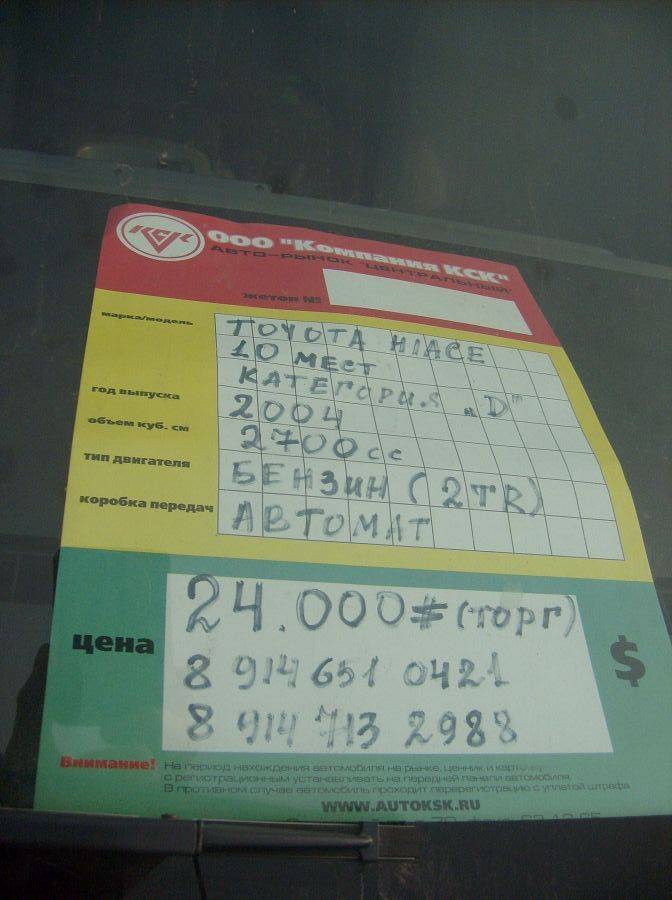 КСК
ООО "Компания КСК"
АВТО-РЫНОК "ЦЕНТРАЛЬНЫЙ"
жетон №
марка/модель TOYOTA HIACE
10 МЕСТ
КАТЕГОРИЯ „D"
год выпуска 2004
объем куб. см 2700 cc
тип двигателя БЕНЗИН (2TR)
коробка передач АВТОМАТ
цена 24.000# (торг) $
8 914 651 0421
8 914 713 2988
Внимание! На период нахождения автомобиля на рынке, ценник и
с регистрационным устанавливать на передней панели автомобиля.
В противном случае автомобиль проходит перерегистрацию с уплатой штрафа
WWW.AUTOKSK.RU